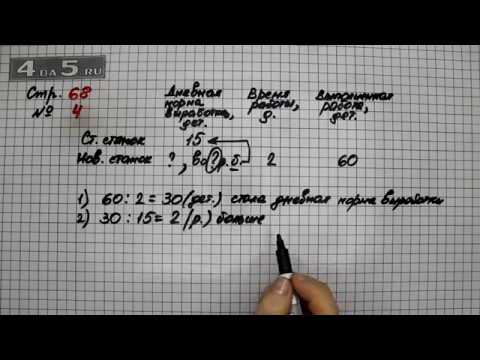 4 ДА 5.RU
Стр. 68
№ 4
Дневная норма выработки, дет.
Время работы, д.
Выполненная работа, дет.
Ст. станок 15
Нов. станок ?, во ? р. б. 2 60
1) 60 : 2 = 30 (дет.) стала дневная норма выработки
2) 30 : 15 = 2 (р.) больше